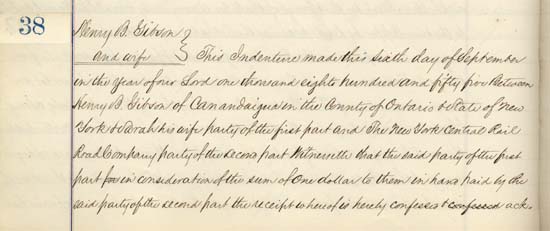 38
Henry B. Gibson
and wife } This Indenture made this sixth day of September
in the year of our Lord one thousand eights hundred and fifty five Between
Henry B. Gibson of Canandaigua in the County of Ontario & State of New
York & Sarah his wife party of the first part and The New York Central Rail
Road Company party of the second part Witnesseth that the said party of the first
part for in consideration of the sum of One dollar to them in hand paid by the
said party of the second part the receipt whereof is hereby confessed & confessed ack.